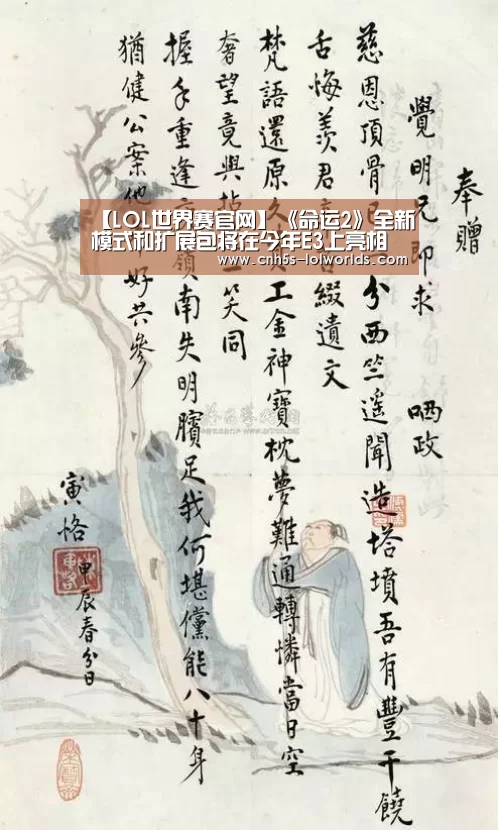 奉贈
覺明兄即求 哂政
慈恩頂骨已 分西竺遙聞造塔墳吾有豐干饒
舌悔羨君 綴遺文
梵語還原久 工金神寶枕夢難通轉憐當日空
奢望竟與拈 一笑同
握手重逢 嶺南失明臏足我何堪儻能八十身
猶健公案他 好共參
寅恪
甲辰春分日
【LOL世界赛官网】《命运2》全新
模式和扩展包将在今年E3上亮相
www.cnh5s-lolworlds.com